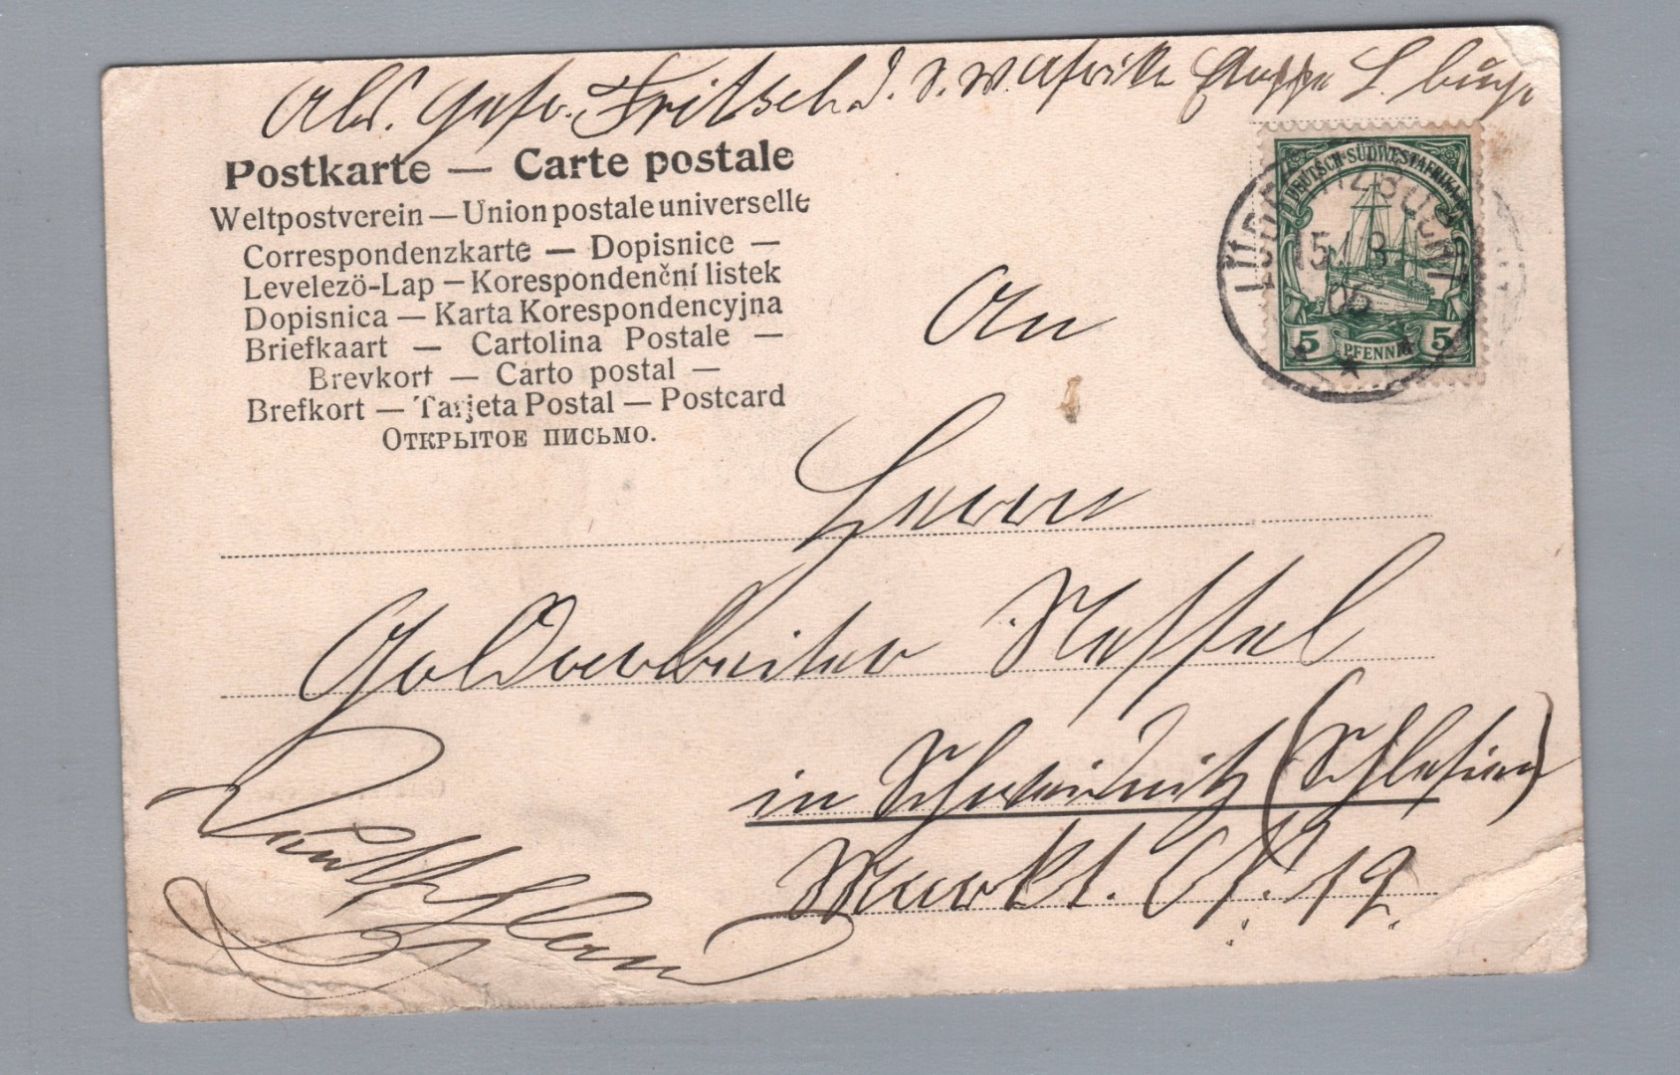 Abs. Gefr. Fritsch D. S. W. Afrika Etappe L. bucht
Postkarte — Carte postale
Weltpostverein — Union postale universelle
Correspondenzkarte — Dopisnice —
Levelező-Lap — Korespondenční listek
Dopisnica — Karta Korespondencyjna
Briefkaart — Cartolina Postale —
Brevkort — Carto postal —
Brefkort — Tarjeta Postal — Postcard
Открытое письмо.
DEUTSCH-SÜDWESTAFRIKA
5 PFENNIG 5
LÜDERITZBUCHT
15.1.3
05
An
Herrn
Goldarbeiter
in Schweidnitz (Schlesien)
Markt. N. 19.
Deutschland